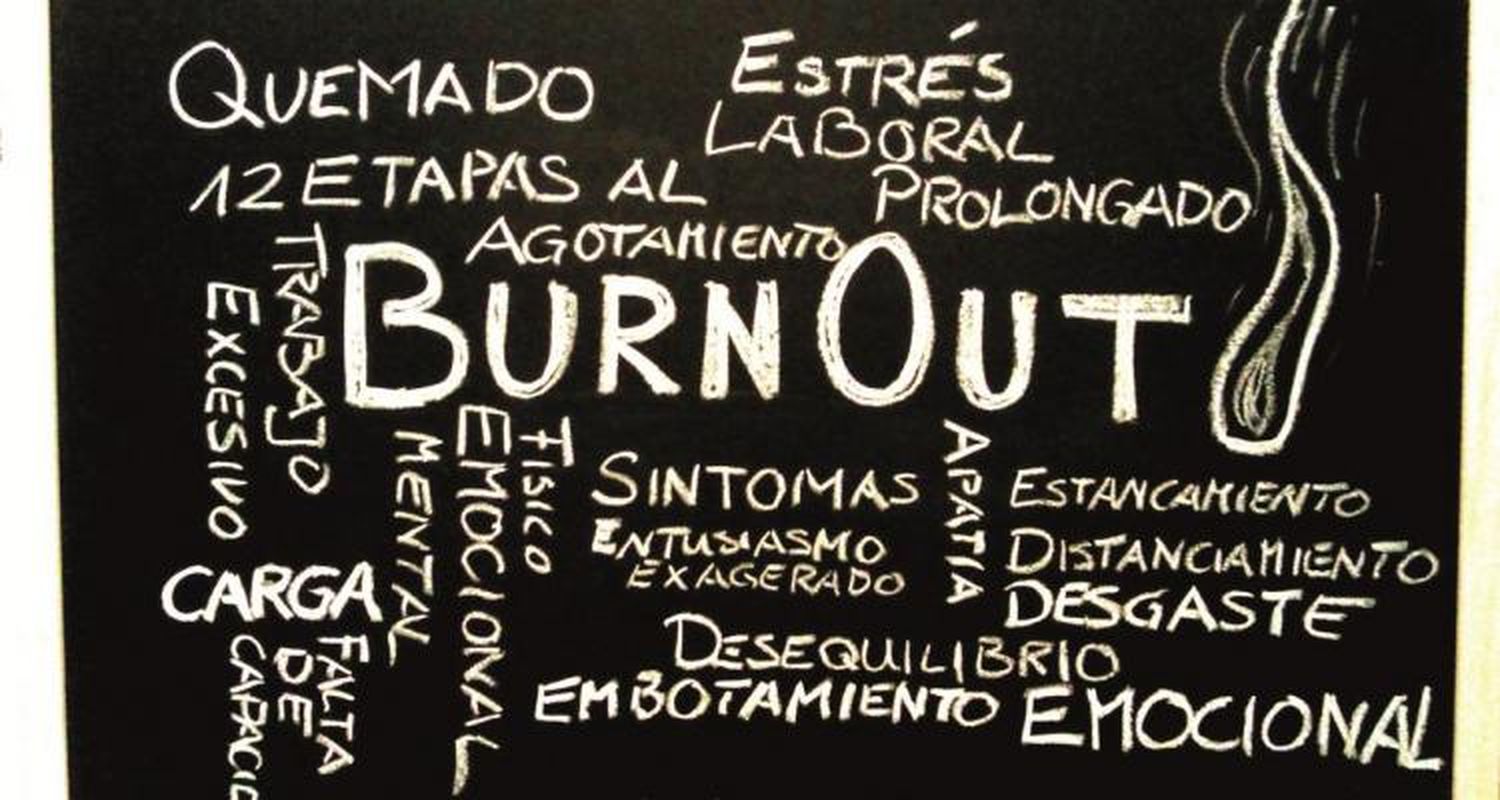 QUEMADO
ESTRÉS
LABORAL
PROLONGADO
12 ETAPAS AL
AGOTAMIENTO
BURNOUT
TRABAJO
EXCESIVO
MENTAL
EMOCIONAL
FISICO
SINTOMAS
ENTUSIASMO
EXAGERADO
APATIA
ESTANCAMIENTO
DISTANCIAMIENTO
DESGASTE
CARGA
FALTA
DE
DESEQUILIBRIO
EMBOTAMIENTO EMOCIONAL